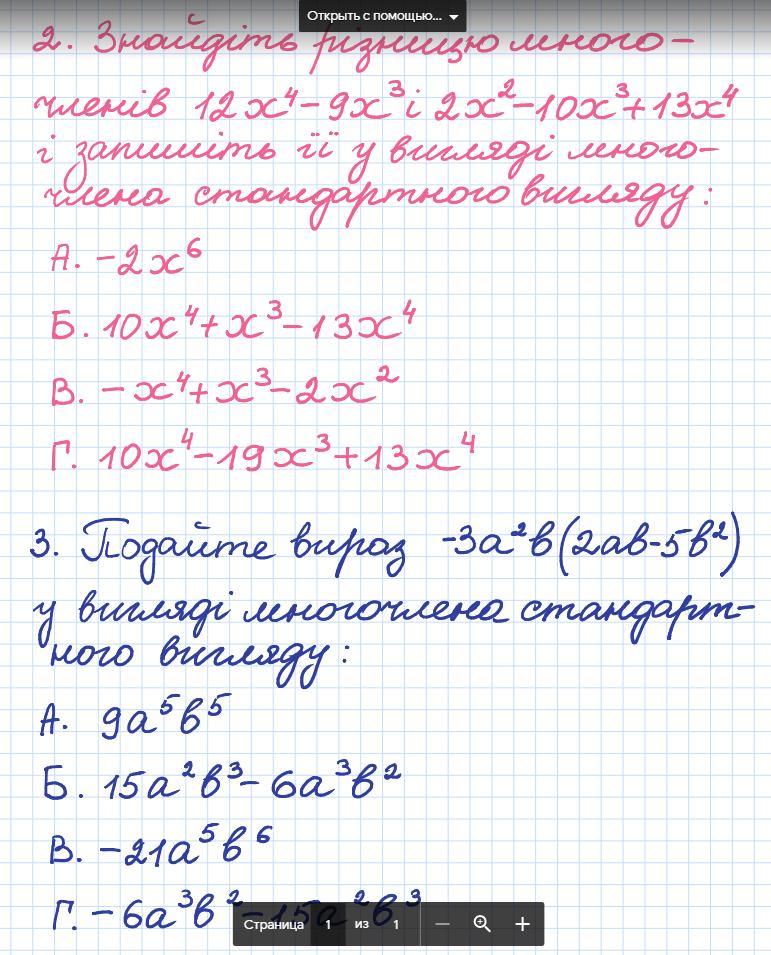 Открыть с помощью...
2. Знайдіть різницю много-
членів 12x⁴-9x³ і 2x²-10x³+13x⁴
і запишіть її у вигляді много-
члена стандартного вигляду:
А. -2x⁶
Б. 10x⁴+x³-13x⁴
В. -x⁴+x³-2x²
Г. 10x⁴-19x³+13x⁴
3. Подайте вираз -3a²b(2ab-5b²)
у вигляді многочлена стандарт-
ного вигляду:
А. 9a⁵b⁵
Б. 15a²b³-6a³b²
В. -21a⁵b⁶
Г. -6a³b²-15a²b³
Страница 1 из 1